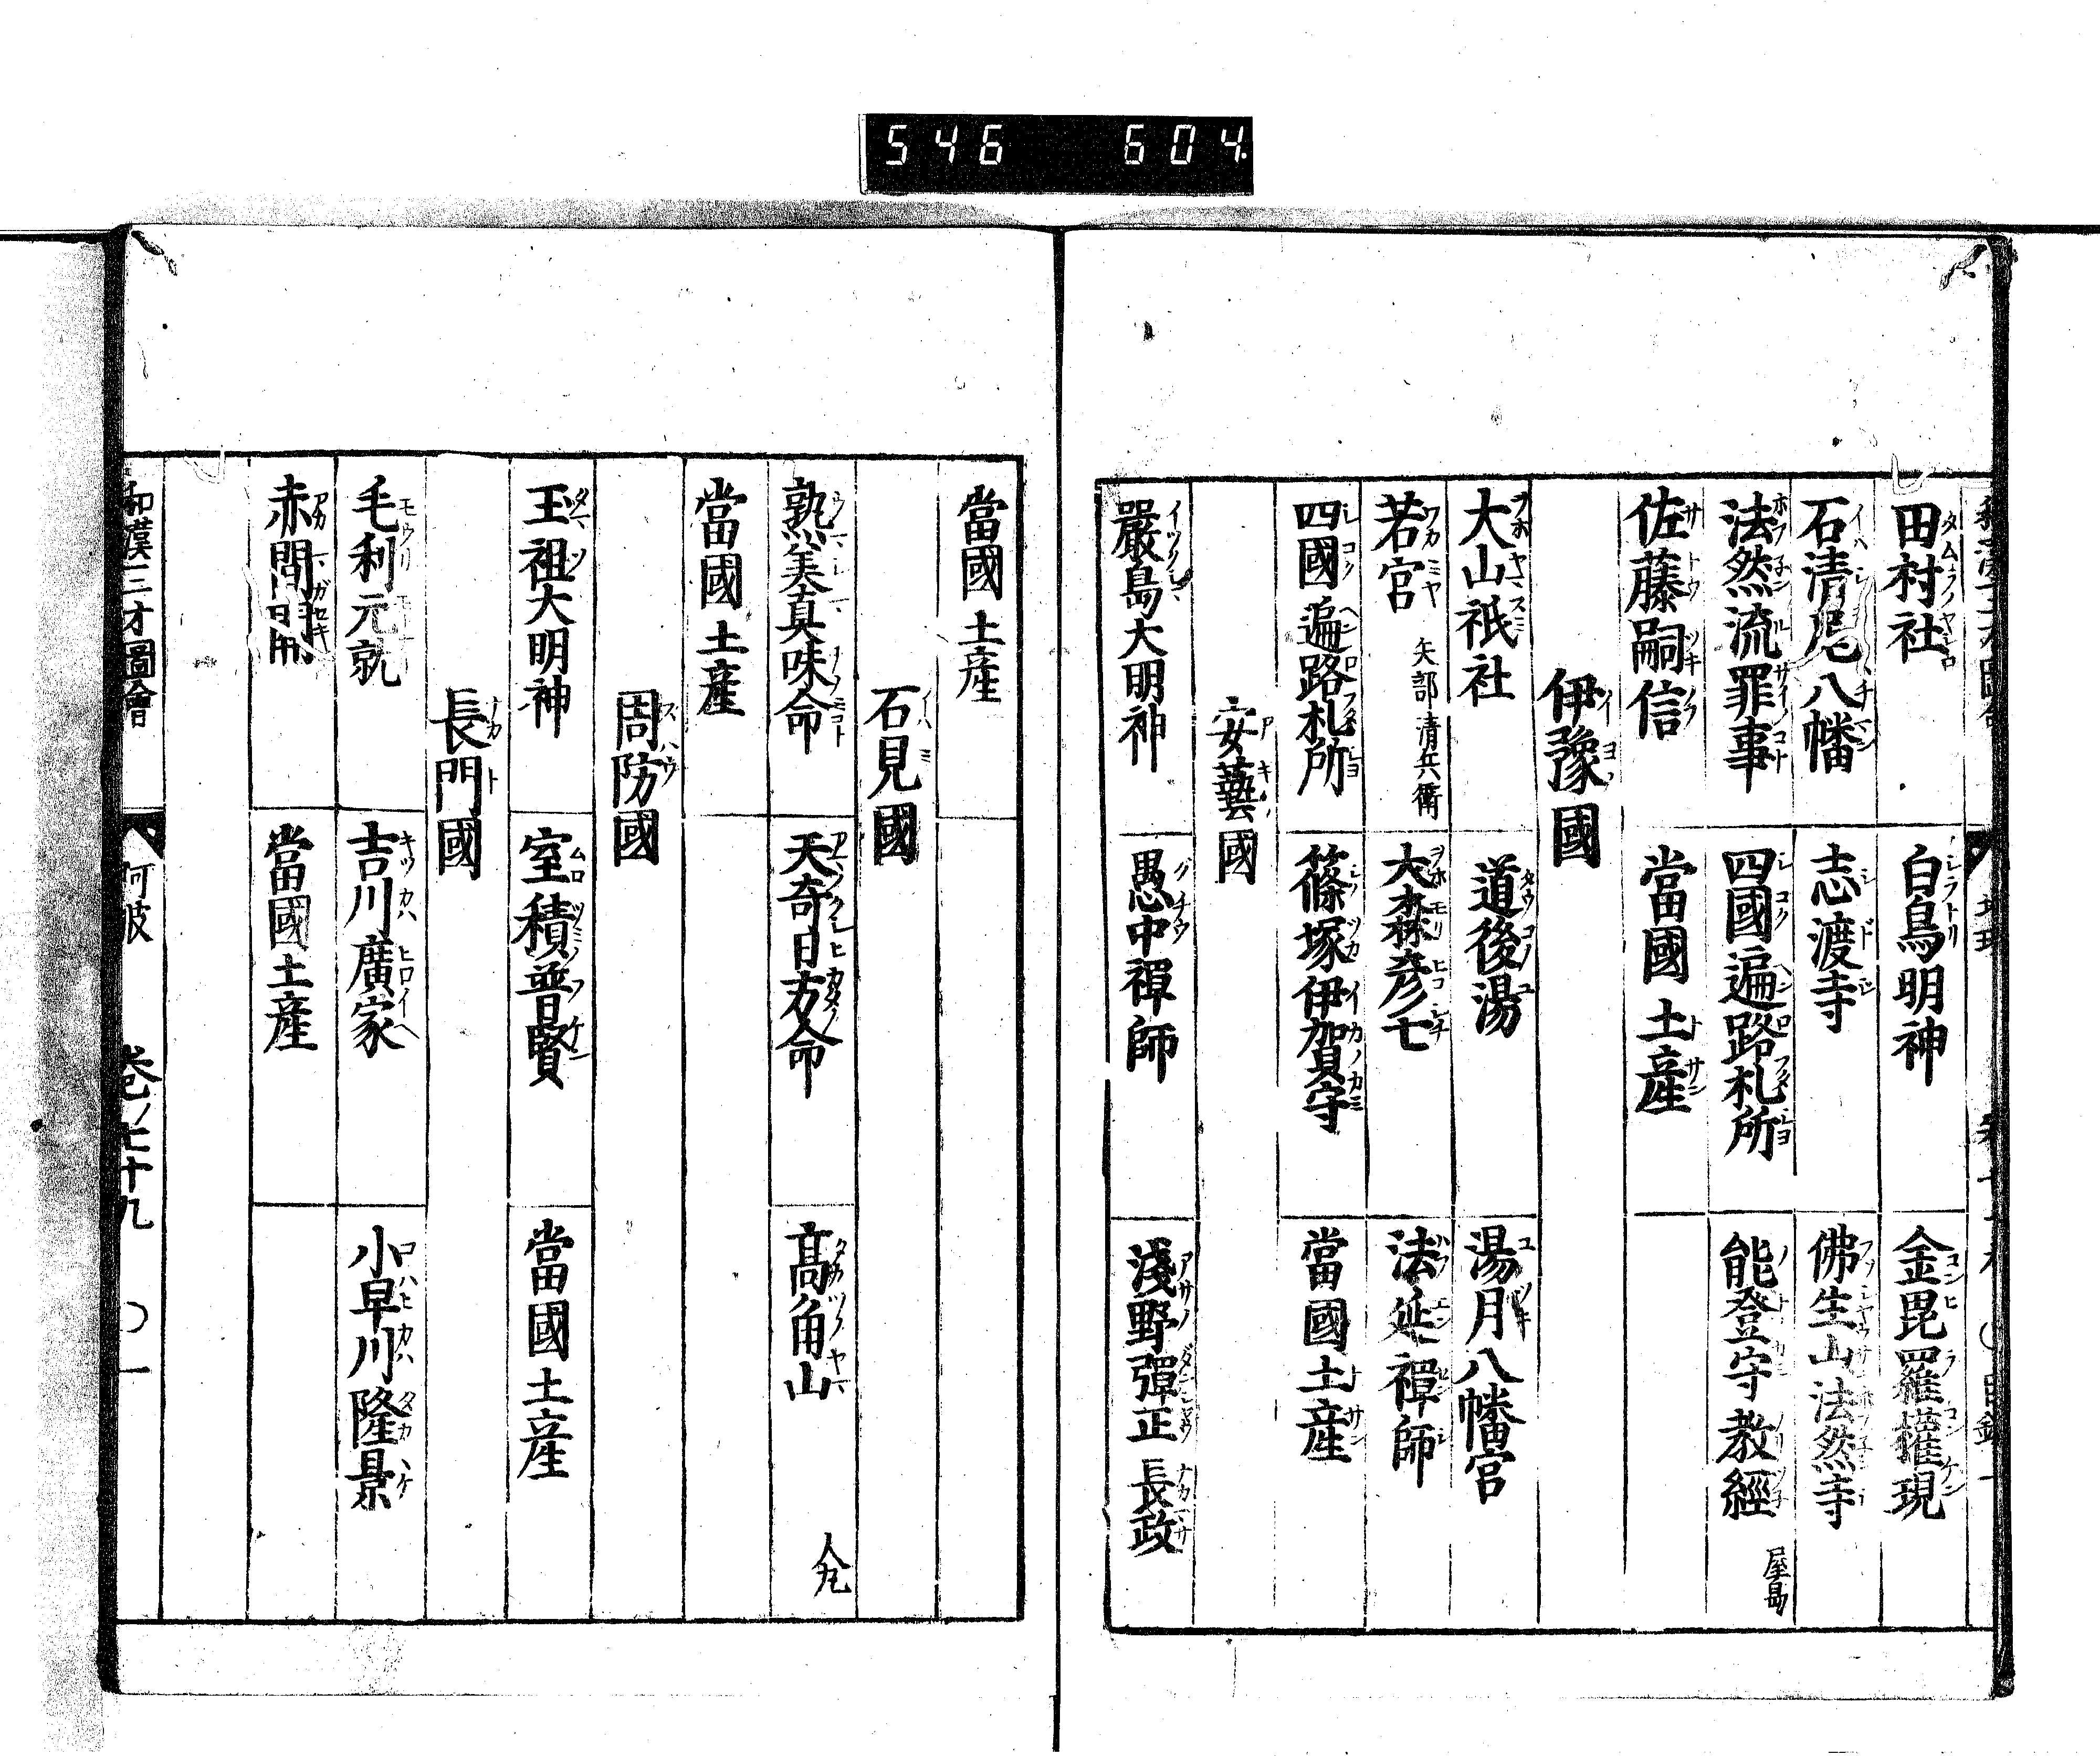 546 604
田村社 白鳥明神 金毘羅權現
石清尾八幡 志渡寺 佛生山法然寺
法然流罪事 四國遍路札所 能登守教經 屋島
佐藤嗣信 當國土産
伊豫國
大山祇社 道後湯 湯月八幡宮
若宮 矢部清兵衞 大森彦七 法延禪師
四國遍路札所 篠塚伊賀守 當國土産
安藝國
嚴島大明神 愚中禪師 淺野彈正長政
當國土産
石見國
天奇日方命 髙角山 人丸
當國土産
周防國
玉祖大明神 室積普賢 當國土産
長門國
毛利元就 吉川廣家 小早川隆景
赤間關 當國土産
和漢三才圖會 阿波 卷ノ七十九 〇一